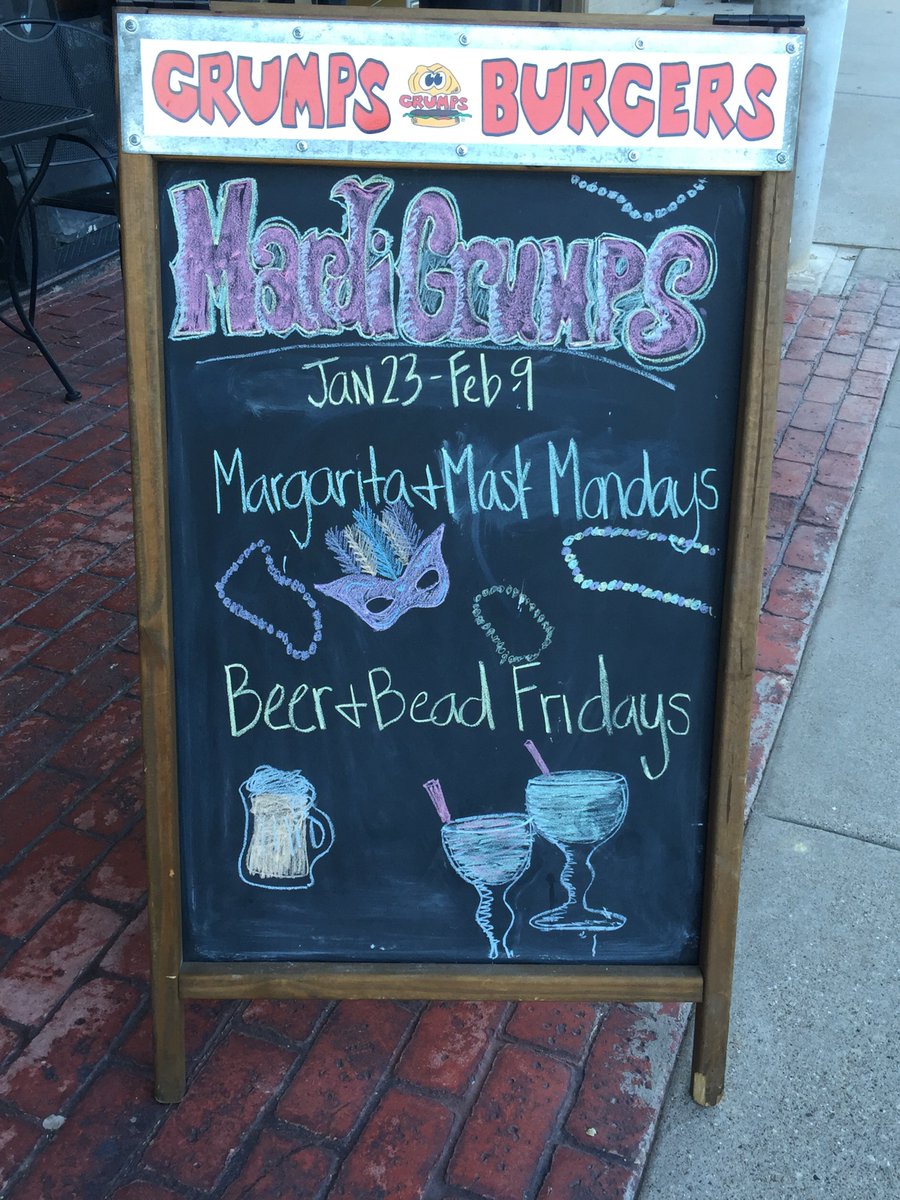 GRUMPS GRUMPS BURGERS
Mardi Grumps
Jan 23 - Feb 9
Margarita + Mask Mondays
Beer + Bead Fridays